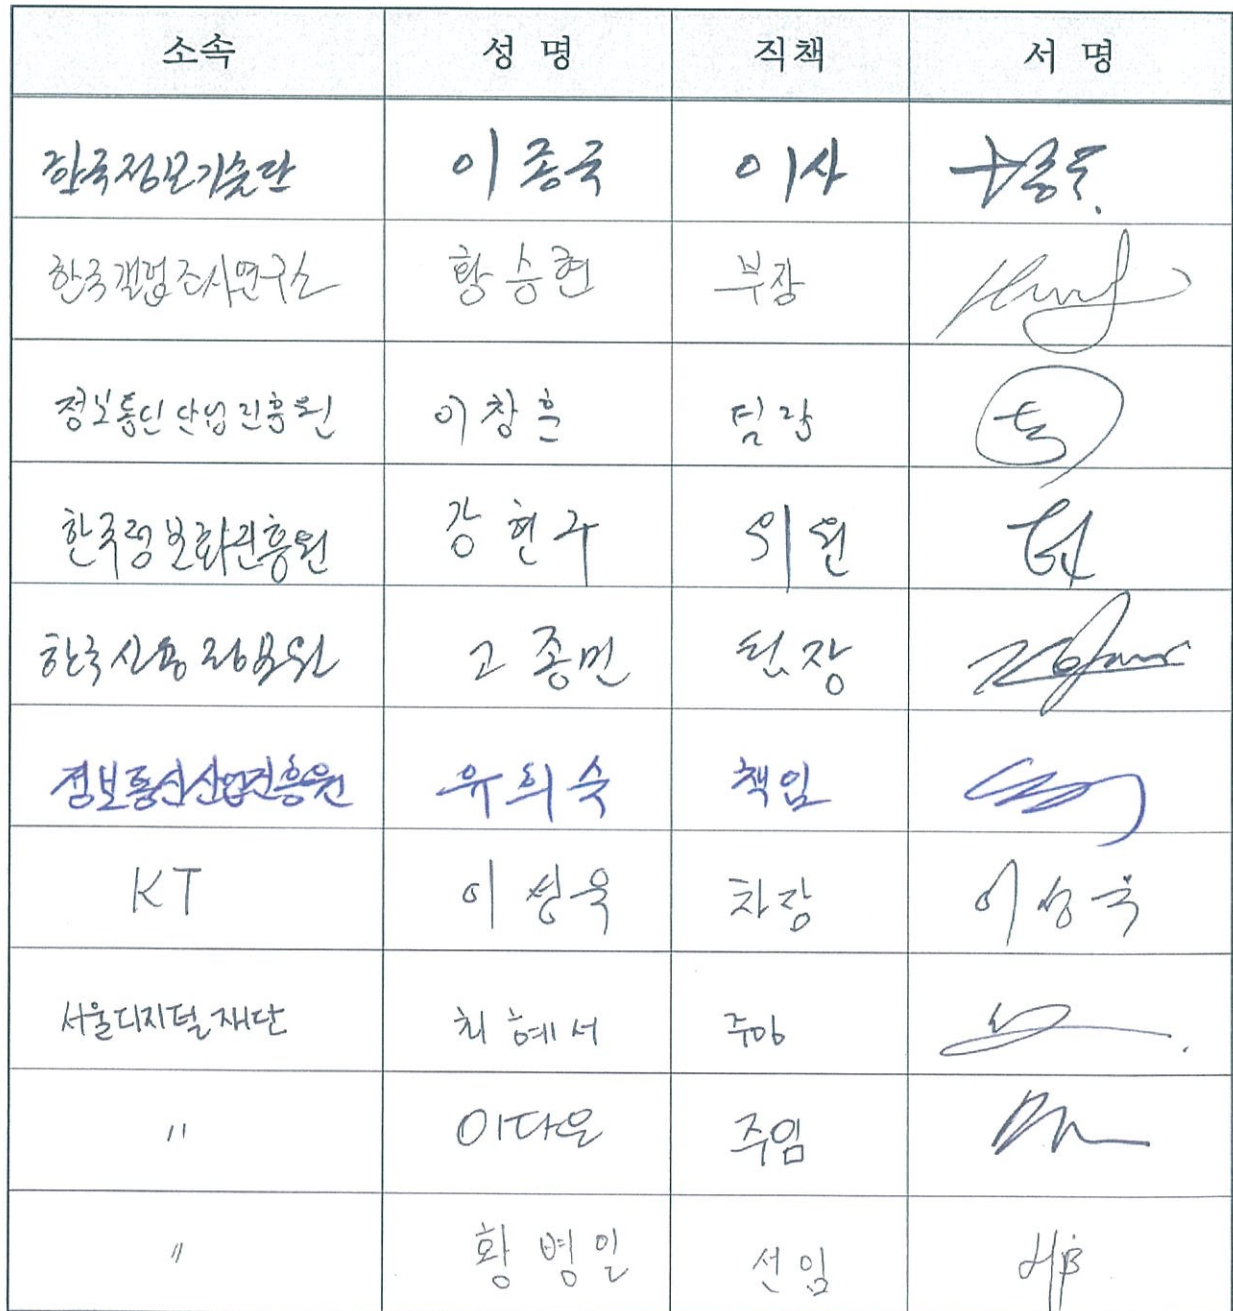 소속 성 명 직책 서 명
한국정보기술단 이종국 이사
한국갤럽조사연구소 황승현 부장
정보통신산업진흥원 이창훈 팀장
한국정보화진흥원 강현구 위원
한국신용정보원 고종민 팀장
정보통신산업진흥원 유희숙 책임
KT 이성욱 차장 이성욱
서울디지털재단 최혜서 주임
〃 이다운 주임
〃 황병일 선임